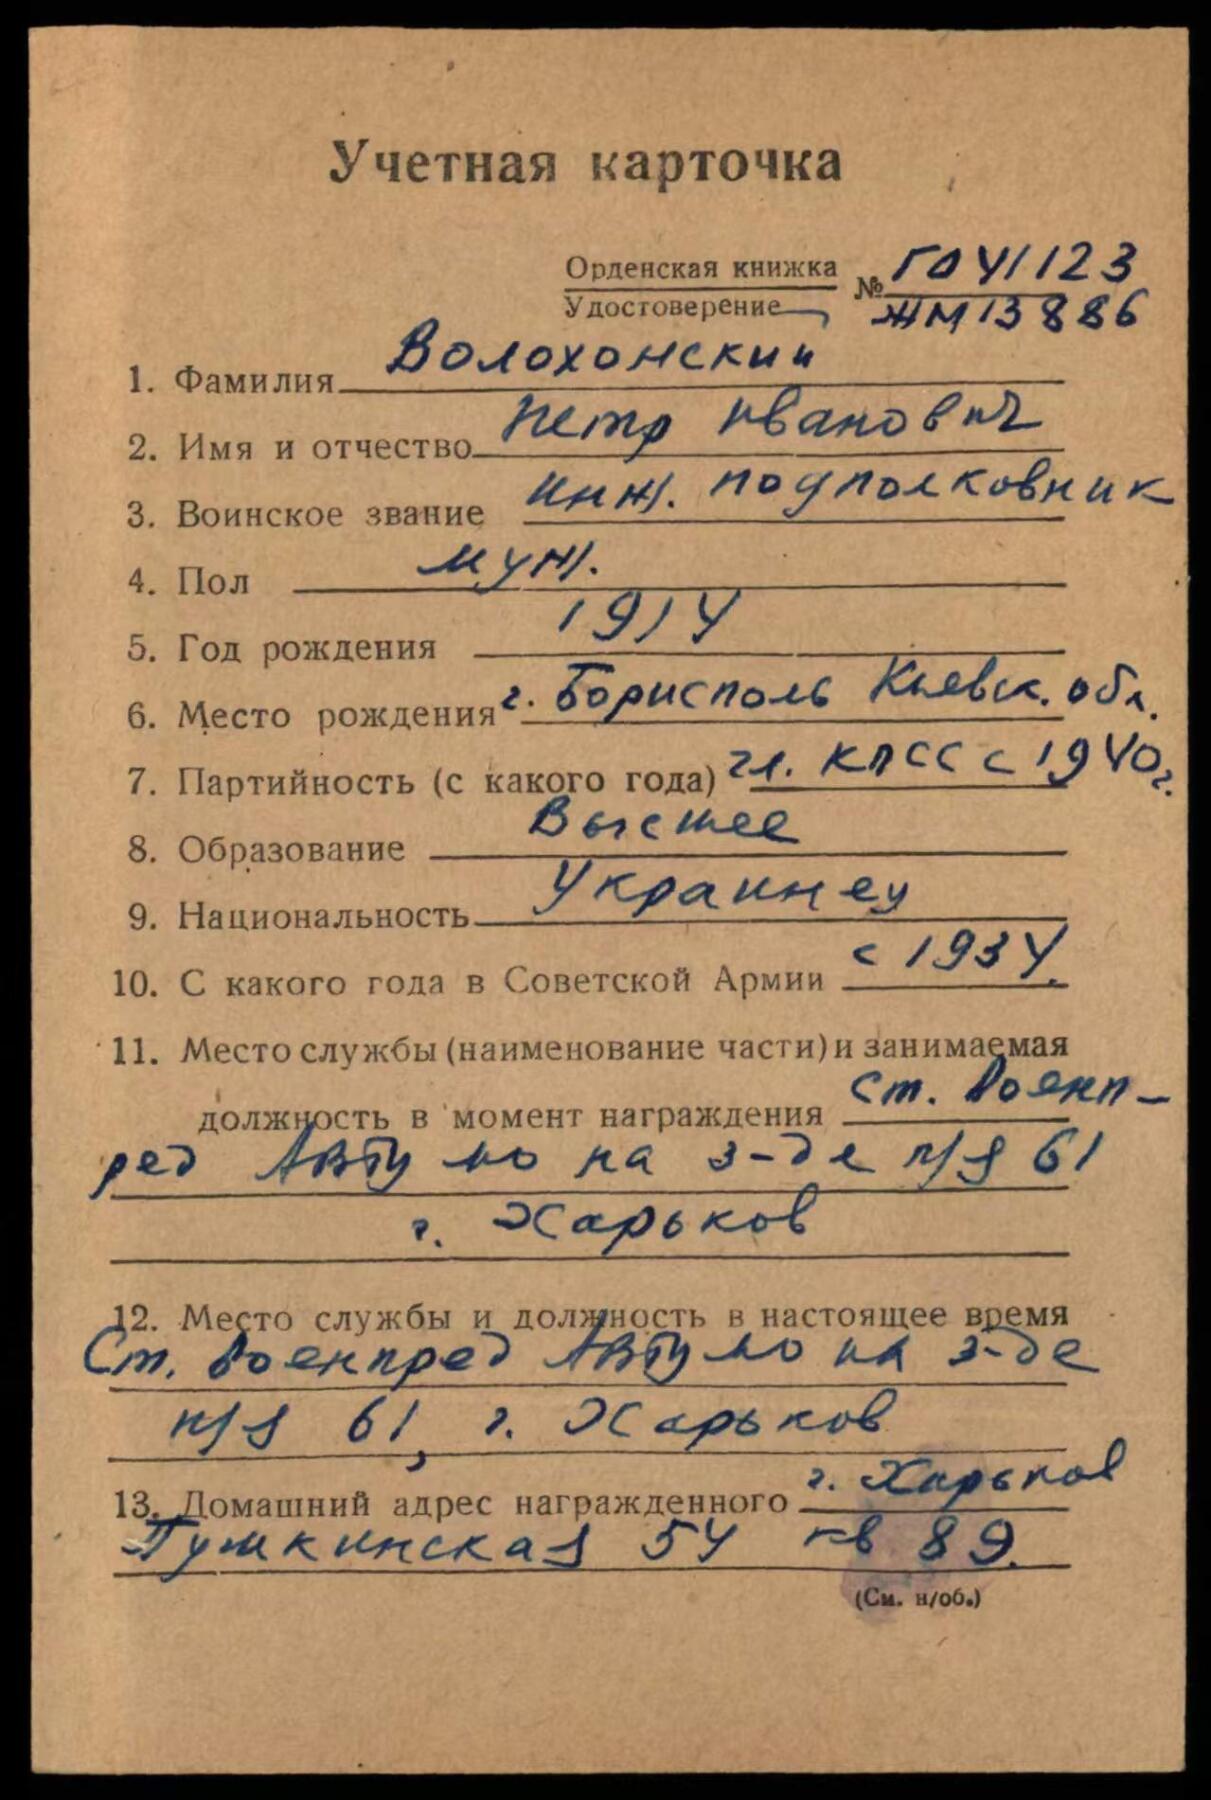 Учетная карточка
Орденская книжка № ГО 411123
Удостоверение ЖМ 13886
1. Фамилия Волохонский
2. Имя и отчество Петр Иванович
3. Воинское звание инж. подполковник
4. Пол муж.
5. Год рождения 1914
6. Место рождения г. Борисполь Киевск. обл.
7. Партийность (с какого года) чл. КПСС с 1940 г.
8. Образование Высшее
9. Национальность Украинец
10. С какого года в Советской Армии с 1934.
11. Место службы (наименование части) и занимаемая
должность в момент награждения ст. военп-
ред АВТУ МО на з-де п/я 61
г. Харьков
12. Место службы и должность в настоящее время
Ст. военпред АВТУ МО на з-де
п/я 61, г. Харьков
13. Домашний адрес награжденного г. Харьков
Пушкинская 54 кв 89.
(См. н/об.)